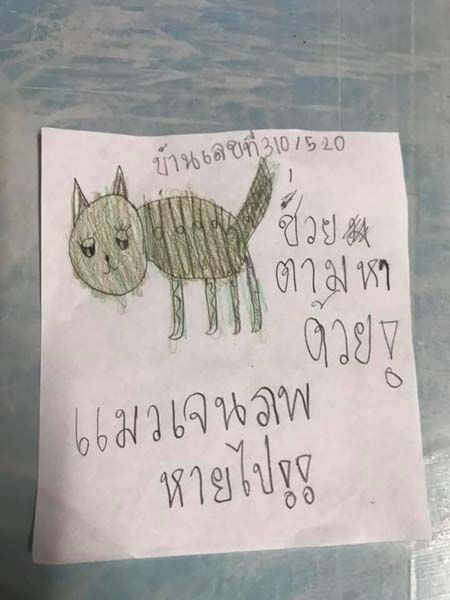 บ้านเลขที่310/520
ช่วย
ตามหา
ด้วย!
แมวเจนลพ
หายไป!!